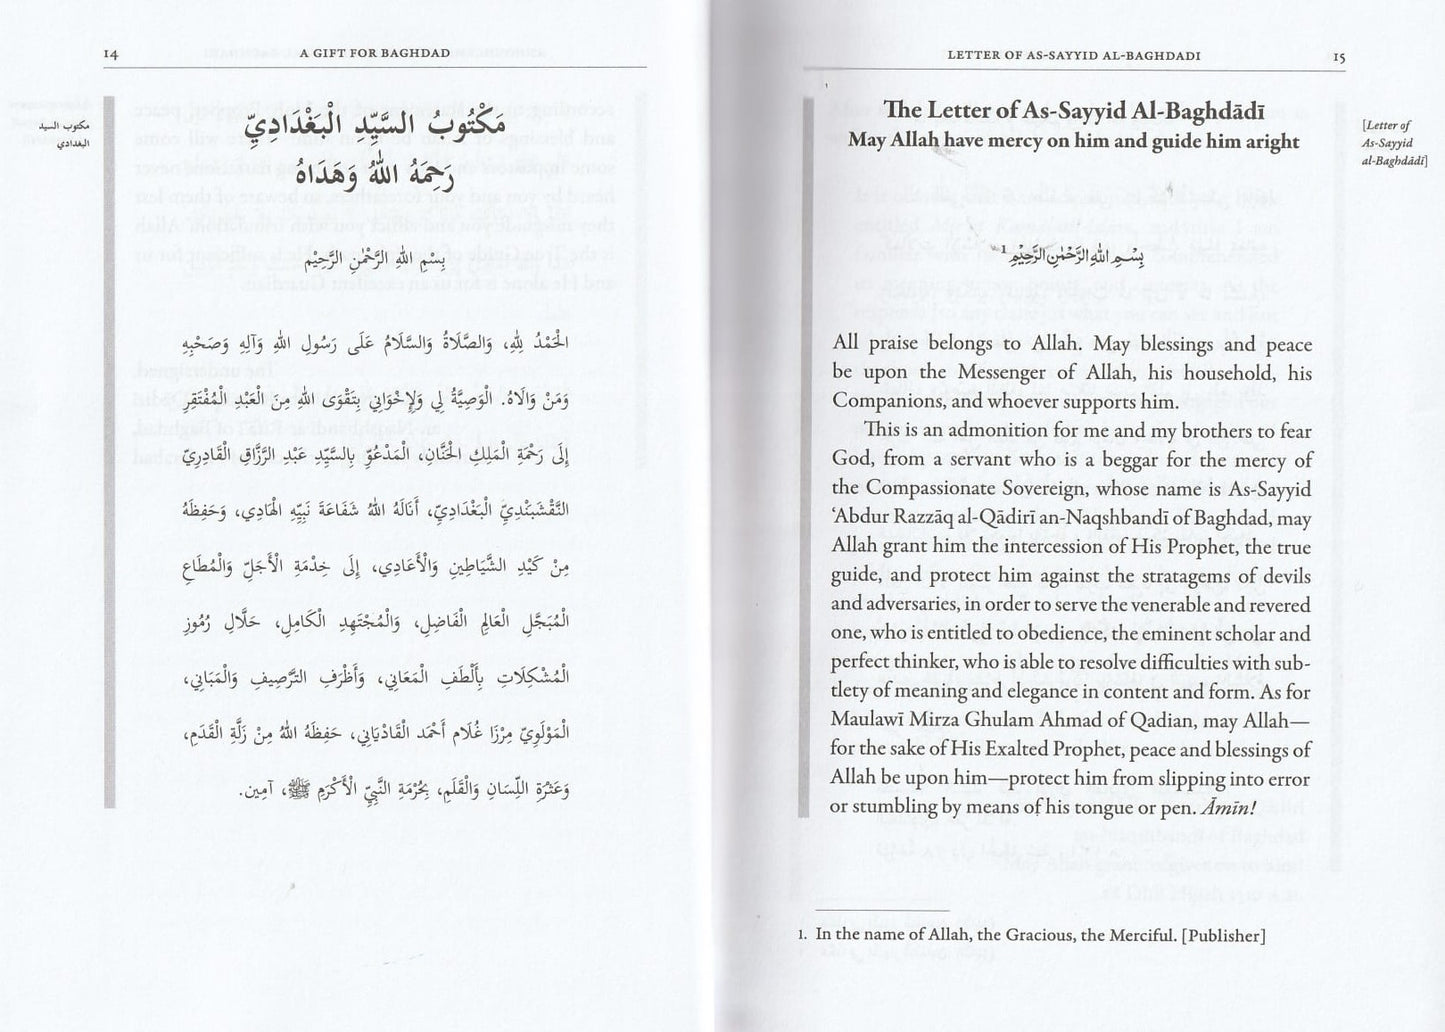 14
A GIFT FOR BAGHDAD
مكتوب السيد
البغدادي
مَكْتُوبُ السَّيِّدِ الْبَغْدَادِيِّ
رَحِمَهُ اللّٰهُ وَهَدَاهُ
بِسْمِ اللّٰهِ الرَّحْمٰنِ الرَّحِيْمِ
الْحَمْدُ لِلّٰهِ، وَالصَّلَاةُ وَالسَّلَامُ عَلَى رَسُولِ اللّٰهِ وَآلِهِ وَصَحْبِهِ
وَمَنْ وَالَاهُ. الْوَصِيَّةُ لِي وَلِإِخْوَانِي بِتَقْوَى اللّٰهِ مِنَ الْعَبْدِ الْمُفْتَقِرِ
إِلَى رَحْمَةِ الْمَلِكِ الْحَنَّانِ، الْمَدْعُوِّ بِالسَّيِّدِ عَبْدِ الرَّزَّاقِ الْقَادِرِيِّ
النَّقْشَبَنْدِيِّ الْبَغْدَادِيِّ، أَنَالَهُ اللّٰهُ شَفَاعَةَ نَبِيِّهِ الْهَادِي، وَحَفِظَهُ
مِنْ كَيْدِ الشَّيَاطِينِ وَالْأَعَادِي، إِلَى خِدْمَةِ الْأَجَلِّ وَالْمُطَاعِ
الْمُبَجَّلِ الْعَالِمِ الْفَاضِلِ، وَالْمُجْتَهِدِ الْكَامِلِ، حَلَّالِ رُمُوزِ
الْمُشْكِلَاتِ بِأَلْطَفِ الْمَعَانِي، وَأَظْرَفِ التَّرْصِيفِ وَالْمَبَانِي،
الْمَوْلَوِيِّ مِرْزَا غُلَام أَحْمَد الْقَادْيَانِي، حَفِظَهُ اللّٰهُ مِنْ زَلَّةِ الْقَدَمِ،
وَعَثْرَةِ اللِّسَانِ وَالْقَلَمِ، بِحُرْمَةِ النَّبِيِّ الْأَكْرَمِ ﷺ، آمِين.
LETTER OF AS-SAYYID AL-BAGHDADI
15
The Letter of As-Sayyid Al-Baghdādī
May Allah have mercy on him and guide him aright
[Letter of
As-Sayyid
al-Baghdādī]
بِسْمِ اللّٰهِ الرَّحْمٰنِ الرَّحِيْمِ 1
All praise belongs to Allah. May blessings and peace
be upon the Messenger of Allah, his household, his
Companions, and whoever supports him.
This is an admonition for me and my brothers to fear
God, from a servant who is a beggar for the mercy of
the Compassionate Sovereign, whose name is As-Sayyid
‘Abdur Razzāq al-Qādirī an-Naqshbandī of Baghdad, may
Allah grant him the intercession of His Prophet, the true
guide, and protect him against the stratagems of devils
and adversaries, in order to serve the venerable and revered
one, who is entitled to obedience, the eminent scholar and
perfect thinker, who is able to resolve difficulties with sub-
tlety of meaning and elegance in content and form. As for
Maulawī Mirza Ghulam Ahmad of Qadian, may Allah—
for the sake of His Exalted Prophet, peace and blessings of
Allah be upon him—protect him from slipping into error
or stumbling by means of his tongue or pen. Āmīn!
1. In the name of Allah, the Gracious, the Merciful. [Publisher]